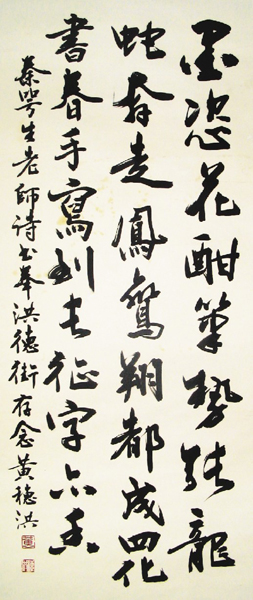 墨恣花酣筆勢張龍
蛇奔走鳳鸞翔都成四化
書春手寫到長征字亦香
秦咢生老師詩書奉洪德存念黃穗洪